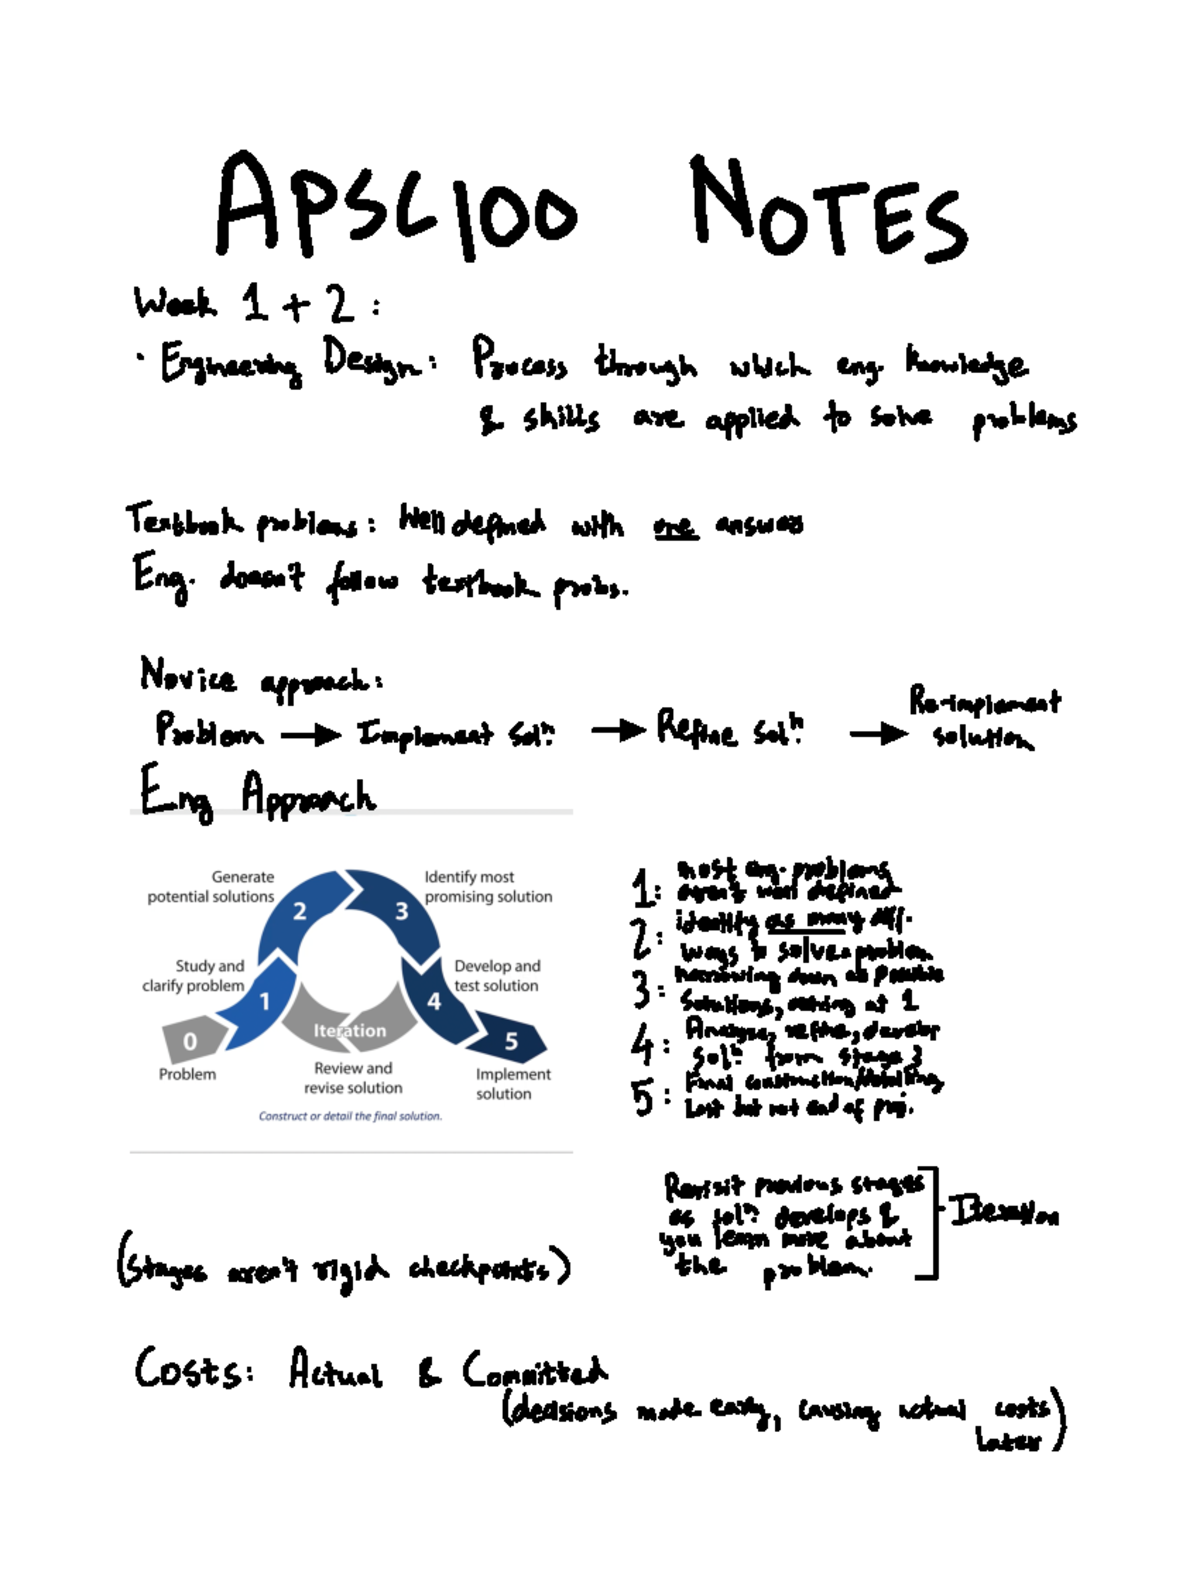 APSC100 NOTES
Week 1 + 2 :
· Engineering Design: Process through which eng. knowledge
& skills are applied to solve problems
Textbook problems: Well defined with one answer
Eng. doesn't follow textbook probs.
Novice approach:
Problem → Implement solⁿ. → Refine solⁿ. → Re-implement
solution
Eng Approach
Generate
potential solutions
Identify most
promising solution
2
3
Study and
clarify problem
Develop and
test solution
1
4
0
Iteration
5
Problem
Review and
revise solution
Implement
solution
Construct or detail the final solution.
1: most eng. problems
aren't well defined
2: identify as many diff.
ways to solve a problem
3: narrowing down as possible
solutions, ending at 1
4: Analyze, refine, develop
solⁿ. from stage 3
5: Final construction/detailing
Last but not end of proj.
Revisit previous stages
as solⁿ. develops &
you learn more about
the problem.
Iteration
(stages aren't rigid checkpoints)
Costs: Actual & Committed
(decisions made early, causing actual costs
later)